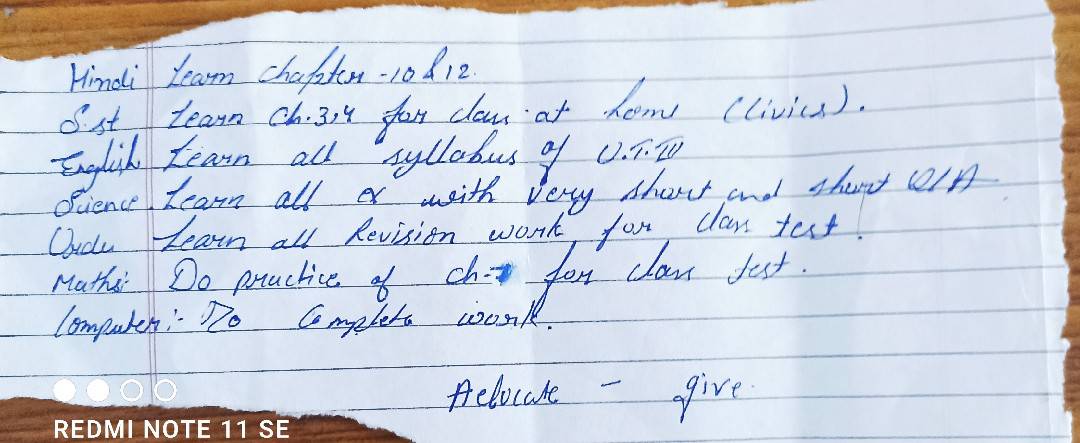 Hindi Learn Chapter -10 & 12.
S.st Learn Ch.3,4 for class at home (Civics).
English Learn all syllabus of U.T.III
Science. Learn all with very short and short Q/A
Urdu Learn all Revision work for class test.
Maths:- Do practice of ch- for class test.
Computer:- Do Complete work.
- give.
REDMI NOTE 11 SE